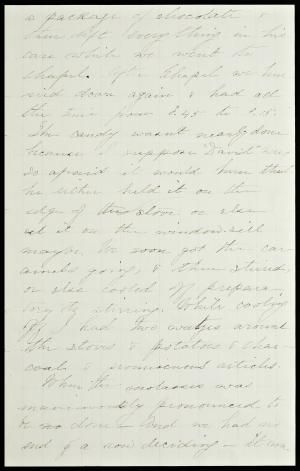 a package of chocolate &
then left everything in his
care while we went to
chapel. After Chapel we hur
ried down again & had all
the time from 8.45 to 9.15.
The candy wasn't nearly done
because I suppose "David" was
so afraid it would burn that
he either held it on the
edge of the stove or else
set it on the window-sill
maybe. We soon got the car
amels going, & then stirred,
or else cooled off prepara
tory to stirring. While cooling
off I had two waltzes around
the stoves & potatoes & char
coal & promiscuous articles.
When the molasses was
unanimously pronounced to
be no done - and we had no
end of a row deciding - it was